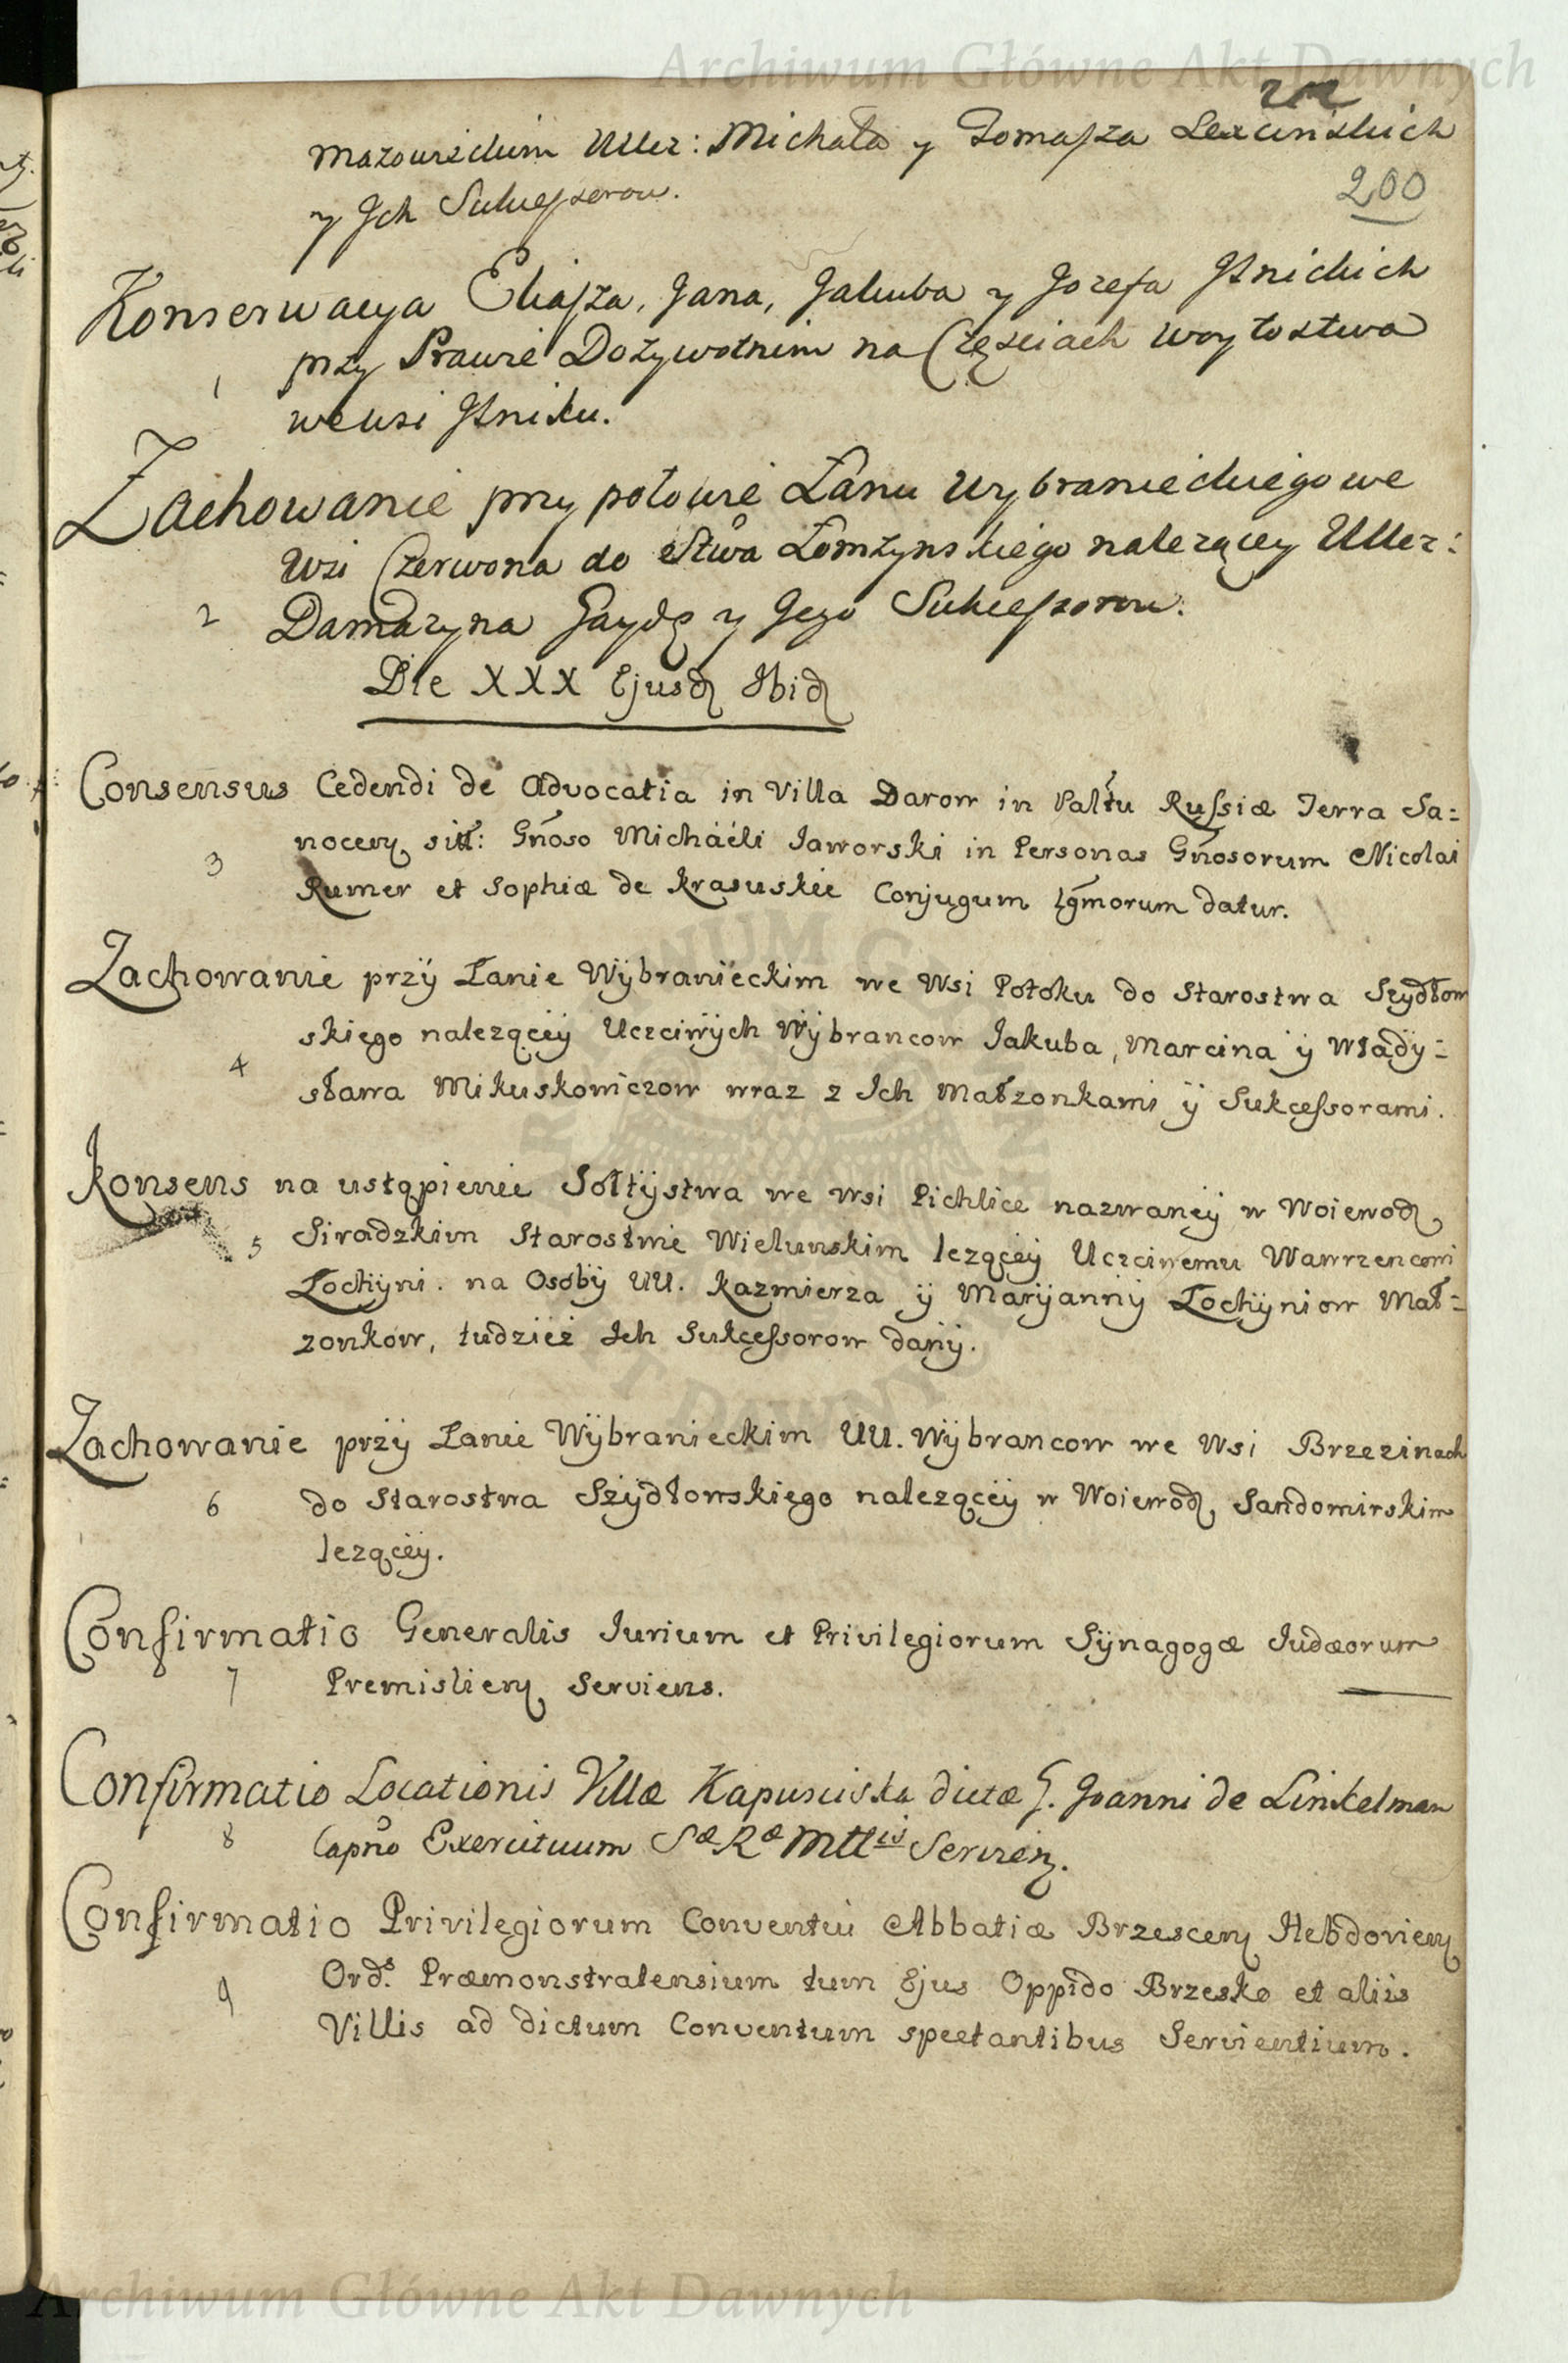 Archiwum Główne Akt Dawnych
200
Mazowieckim Uczc: Michała y Tomasza
y Ich Sukcessorow.
Konserwacya Eliasza, Jana, Jakuba y Jozefa Ilnickich
przy Prawie Dożywotnim na Częściach woytostwa
1
we wsi Ilniku.
Zachowanie przy połowie Łanu Wybranieckiego we
Wsi Czerwona do Stwa Łomżynskiego nalezącey Uczc:
2 Damazyna Gaydę y Jego Sukcessorow.
Die XXX Ejusd Ibid
Consensus Cedendi de Advocatia in Villa Darow in Palttu Russiæ Terra Sa=
3 nocen sitt: Gnoso Michaéli Jaworski in Personas Gnosorum Nicolai
Rumer et Sophiæ de Krasuskie Conjugum lgmorum datur.
Zachowanie przÿ Łanie Wÿbranieckim we Wsi Potoku do Starostwa Szydłow
skiego nalezącëÿ Uczciwÿch Wÿbrancow Jakuba, Marcina ÿ Władÿ=
4
sława Mikuskowiczow wraz z Ich Małzonkami ÿ Sukcessorami.
Konsens na ustąpienie Sołtÿstwa we wsi Pichlice nazwaneÿ w Woiewod
5 Siradzkim Starostwie Wielunskim lezącëÿ Uczciwemu Wawrzencowi
Łochÿni. na Osobÿ UU. Kazmierza ÿ Marÿannÿ Łochÿniow Mał=
zonkow, tudziez Ich Sukcessorow danÿ.
Zachowanie przÿ Łanie Wÿbranieckim UU. Wÿbrancow we Wsi Brzezinach
6 do Starostwa Szÿdłowskiego nalezącëÿ w Woiewod Sandomirskim
lezącëÿ.
Confirmatio Generalis Jurium et Privilegiorum Sÿnagogæ Judæorum
7 Premislien Serviens.
Confirmatio Locationis Villæ Kapusciska dictæ G. Joanni de Linkelman
8 Capno Exercituum Sæ Ræ Mttis Servien.
Confirmatio Privilegiorum Conventui Abbatiæ Brzescen Hebdovien
9 Ords. Præmonstratensium tum Ejus Oppido Brzesko et aliis
Villis ad dictum Conventum spectantibus Servientium.
Archiwum Główne Akt Dawnych